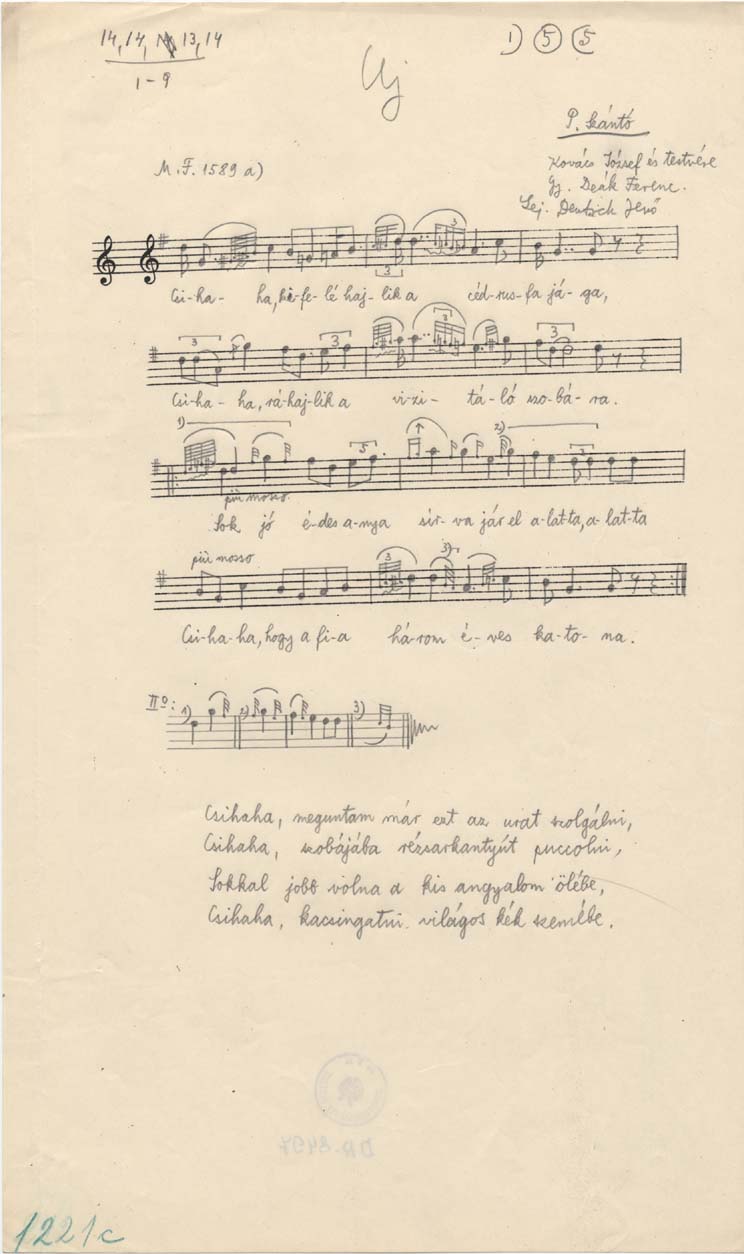 14, 14, 13, 14
1-9
1) 5 5
Uj
P. Szántó
Kovács József és testvére
Gy. Deák Ferenc.
Lej. Deutsch Jenő
M. F. 1589 a)
3
3
3
Csi-ha- ha, ki-fe-lé haj-lik a céd-rus-fa já-ga,
3 3 3 3
Csi-ha-ha, rá-haj-lik a vi-zi-tá-ló szo-bá-ra.
1) 2)
più mosso
Sok jó é-des a-nya sir-va jár el a-lat-ta, a-lat-ta
più mosso 3 3)
Csi-ha-ha, hogy a fi-a há-rom é-ves ka-to-na.
IIº: 1) 2) 3)
Csihaha, meguntam már ezt az urat szolgálni,
Csihaha, szobájába rézsarkantyút puccolni,
Sokkal jobb volna a kis angyalom ölébe,
Csihaha, kacsingatni világos kék szemébe.
1221c